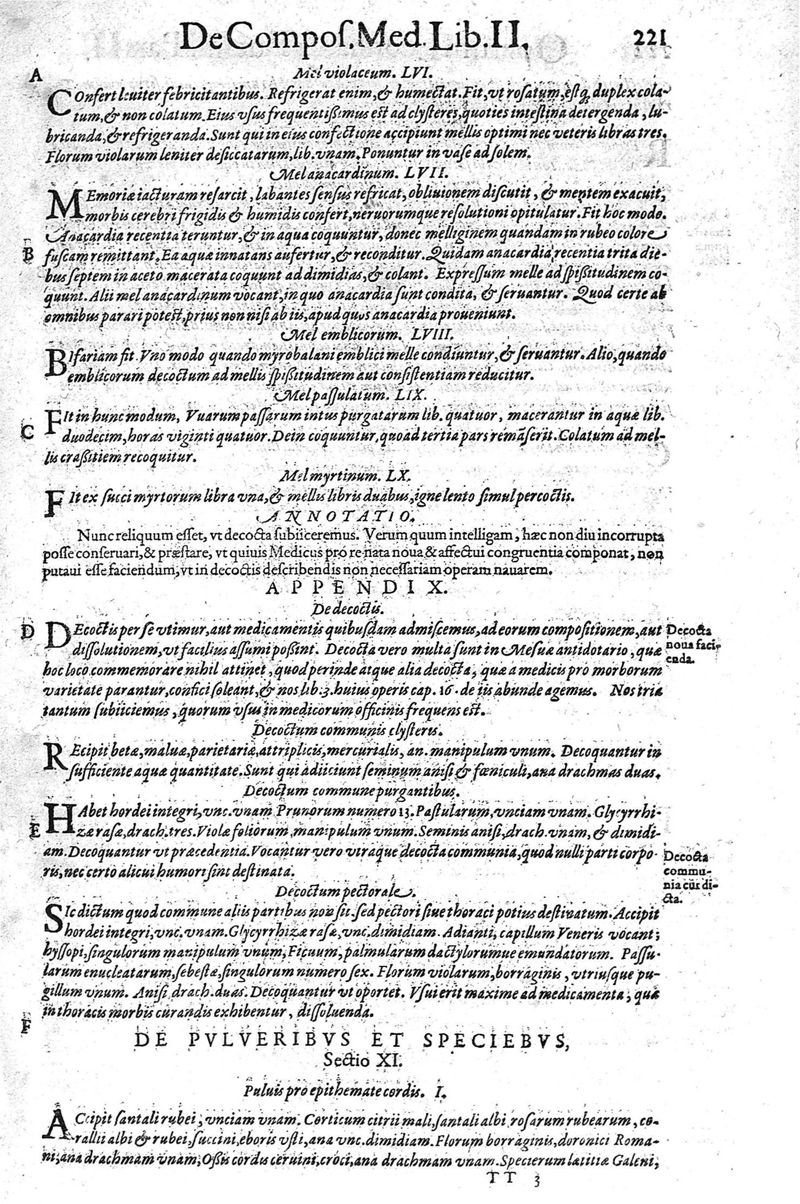 De Compos. Med. Lib. II. 221
A
Mel violaceum. LVI.
COnfert leuiter febricitantibus. Refrigerat enim, & humectat. Fit, vt rosatum, estq; duplex cola-
tum, & non colatum. Eius vsus frequentißimus est ad clysteres, quoties intestina detergenda, lu-
bricanda, & refrigeranda. Sunt qui in eius confectione accipiunt mellis optimi nec veteris libras tres.
Florum violarum leniter desiccatarum, lib. vnam. Ponuntur in vase ad solem.
Mel anacardinum. LVII.
MEmoriæ iacturam resarcit, labantes sensus refricat, obliuionem discutit, & mentem exacuit,
morbis cerebri frigidis & humidis confert, neruorumque resolutioni opitulatur. Fit hoc modo.
Anacardia recentia teruntur, & in aqua coquuntur, donec melliginem quandam in rubeo colore
B
fuscam remittant. Ea aquæ innatans aufertur, & reconditur. Quidam anacardia recentia trita die-
bus septem in aceto macerata coquunt ad dimidias, & colant. Expressum melle ad spißitudinem co-
quunt. Alii mel anacardinum vocant, in quo anacardia sunt condita, & seruantur. Quod certe ab
omnibus parari potest, prius non nisi ab iis, apud quos anacardia proueniunt.
Mel emblicorum. LVIII.
BIfariam fit. Vno modo quando myrobalani emblici melle condiuntur, & seruantur. Alio, quando
emblicorum decoctum ad mellis spißitudinem aut consistentiam reducitur.
Mel passulatum. LIX.
FIt in hunc modum, Vuarum passarum intus purgatarum lib. quatuor, macerantur in aquæ lib.
C
duodecim, horas viginti quatuor. Dein coquuntur, quoad tertia pars remãserit. Colatum ad mel-
lis craßitiem recoquitur.
Mel myrtinum. LX.
FIt ex succi myrtorum libra vna, & mellis libris duabus, igne lento simul percoctis.
ANNOTATIO.
Nunc reliquum esset, vt decocta subiiceremus. Verum quum intelligam, hæc non diu incorrupta
posse conseruari, & præstare, vt quiuis Medicus pro re nata noua & affectui congruentia componat, non
putaui esse faciendum, vt in decoctis describendis non necessariam operam nauarem.
APPENDIX.
De decoctis.
D
DEcoctis per se vtimur, aut medicamentis quibusdam admiscemus, ad eorum compositionem, aut
dissolutionem, vt facilius assumi poßint. Decocta vero multa sunt in Mesuæ antidotario, quæ
hoc loco commemorare nihil attinet, quod perinde atque alia decocta, quæ a medicis pro morborum
varietate parantur, confici soleant, & nos lib. 3. huius operis cap. 16. de iis abunde agemus. Nos tria
tantum subiiciemus, quorum vsus in medicorum officinis frequens est.
Decocta
noua faci-
enda.
Decoctum communis clysteris.
REcipit betæ, maluæ, parietariæ, attriplicis, mercurialis, an. manipulum vnum. Decoquantur in
sufficiente aquæ quantitate. Sunt qui adiiciunt seminum anisi & fœniculi, ana drachmas duas.
Decoctum commune purgantibus.
HAbet hordei integri, vnc. vnam Prunorum numero 13. Passularum, vnciam vnam. Glycyrrhi-
E
zæ rasæ, drach. tres. Violæ foliorum, manipulum vnum. Seminis anisi, drach. vnam, & dimidi-
am. Decoquantur vt præcedentia. Vocantur vero vtraque decocta communia, quod nulli parti corpo-
ris, nec certo alicui humori sint destinata.
Decocta
commu-
nia cur di-
cta.
Decoctum pectorale.
SIc dictum quod commune aliis partibus non sit, sed pectori siue thoraci potius destinatum. Accipit
hordei integri, vnc. vnam. Glycyrrhizæ rasæ, vnc. dimidiam. Adianti, capillum Veneris vocant;
hyssopi, singulorum manipulum vnum, Ficuum, palmularum dactylorumue emundatorum. Passu-
larum enucleatarum, sebestæ, singulorum numero sex. Florum violarum, borraginis, vtriusque pu-
gillum vnum. Anisi, drach. duas. Decoquantur vt oportet. Vsui erit maxime ad medicamenta, quæ
in thoracis morbis curandis exhibentur, dissoluenda.
F
DE PVLVERIBVS ET SPECIEBVS,
Sectio XI.
Puluis pro epithemate cordis. I.
ACcipit santali rubei, vnciam vnam. Corticum citrii mali, santali albi, rosarum rubearum, co-
rallii albi & rubei, succini, eboris vsti, ana vnc. dimidiam. Florum borraginis, doronici Roma-
ni, ana drachmam vnam, Oßis cordis ceruini, croci, ana drachmam vnam. Specierum lætitiæ Galeni,
TT 3